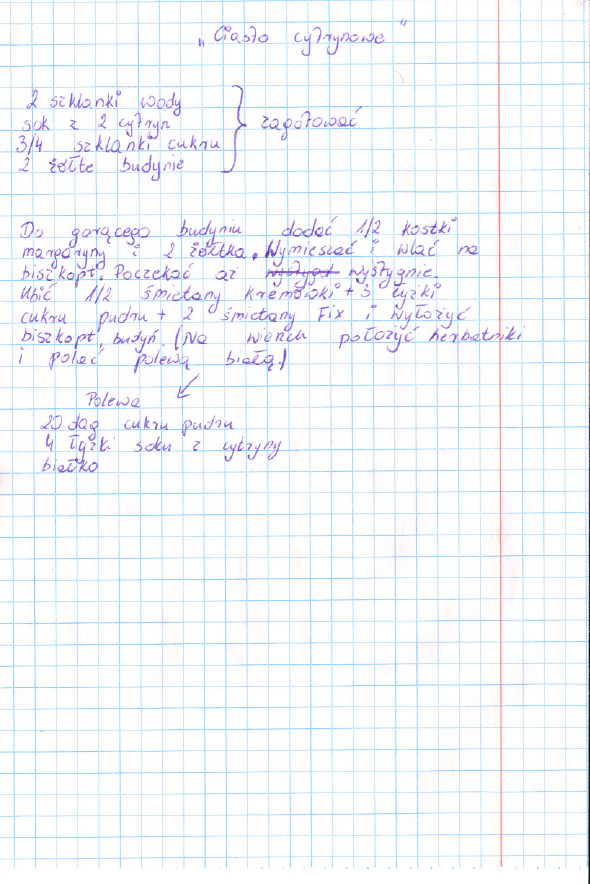 „Ciasto cytrynowe"
2 szklanki wody
sok z 2 cytryn
3/4 szklanki cukru
2 żółte budynie
zagotować
Do gorącego budyniu dodać 1/2 kostki
margaryny i 2 żółtka. Wymieszać i wlać na
biszkopt. Poczekać aż wystygnie.
Ubić 1/2 śmietany kremówki + 3 łyżki
cukru pudru + 2 śmietany Fix i wyłożyć
biszkopt, budyń. (Na wierzch położyć herbatniki
i polać polewą białą.)
Polewa
20 dag cukru pudru
4 łyżki soku z cytryny
białko